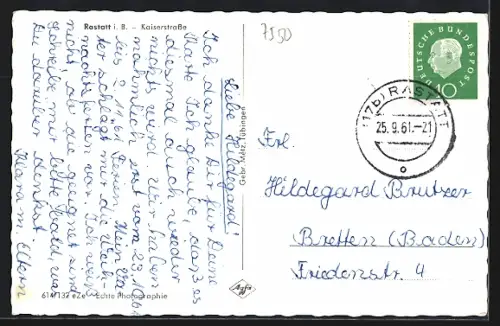 Rastatt i. B. – Kaiserstraße
7550
Liebe Hildegard!
Ich danke Dir für Deine
Karte. Ich glaube, daß es
diesmal auch wieder
nichts wird. Wir haben
nämlich erst vom 23.10.61
bis 2.11.61 Ferien. Mein Va-
ter schlägt mir die Weih-
nachtsferien vor. Ich weiß
nicht, ob die geeignet sind
Schreibe mir bitte bald, was
Du darüber denkst.
Klara m. Eltern
614/132 eZe Echte Photographie
Gebr. Metz, Tübingen
Agfa
DEUTSCHE BUNDESPOST
10
(17b) RASTATT
25.9.61.-21
Frl.
Hildegard Brutzer
Bretten (Baden)
Friedenstr. 4